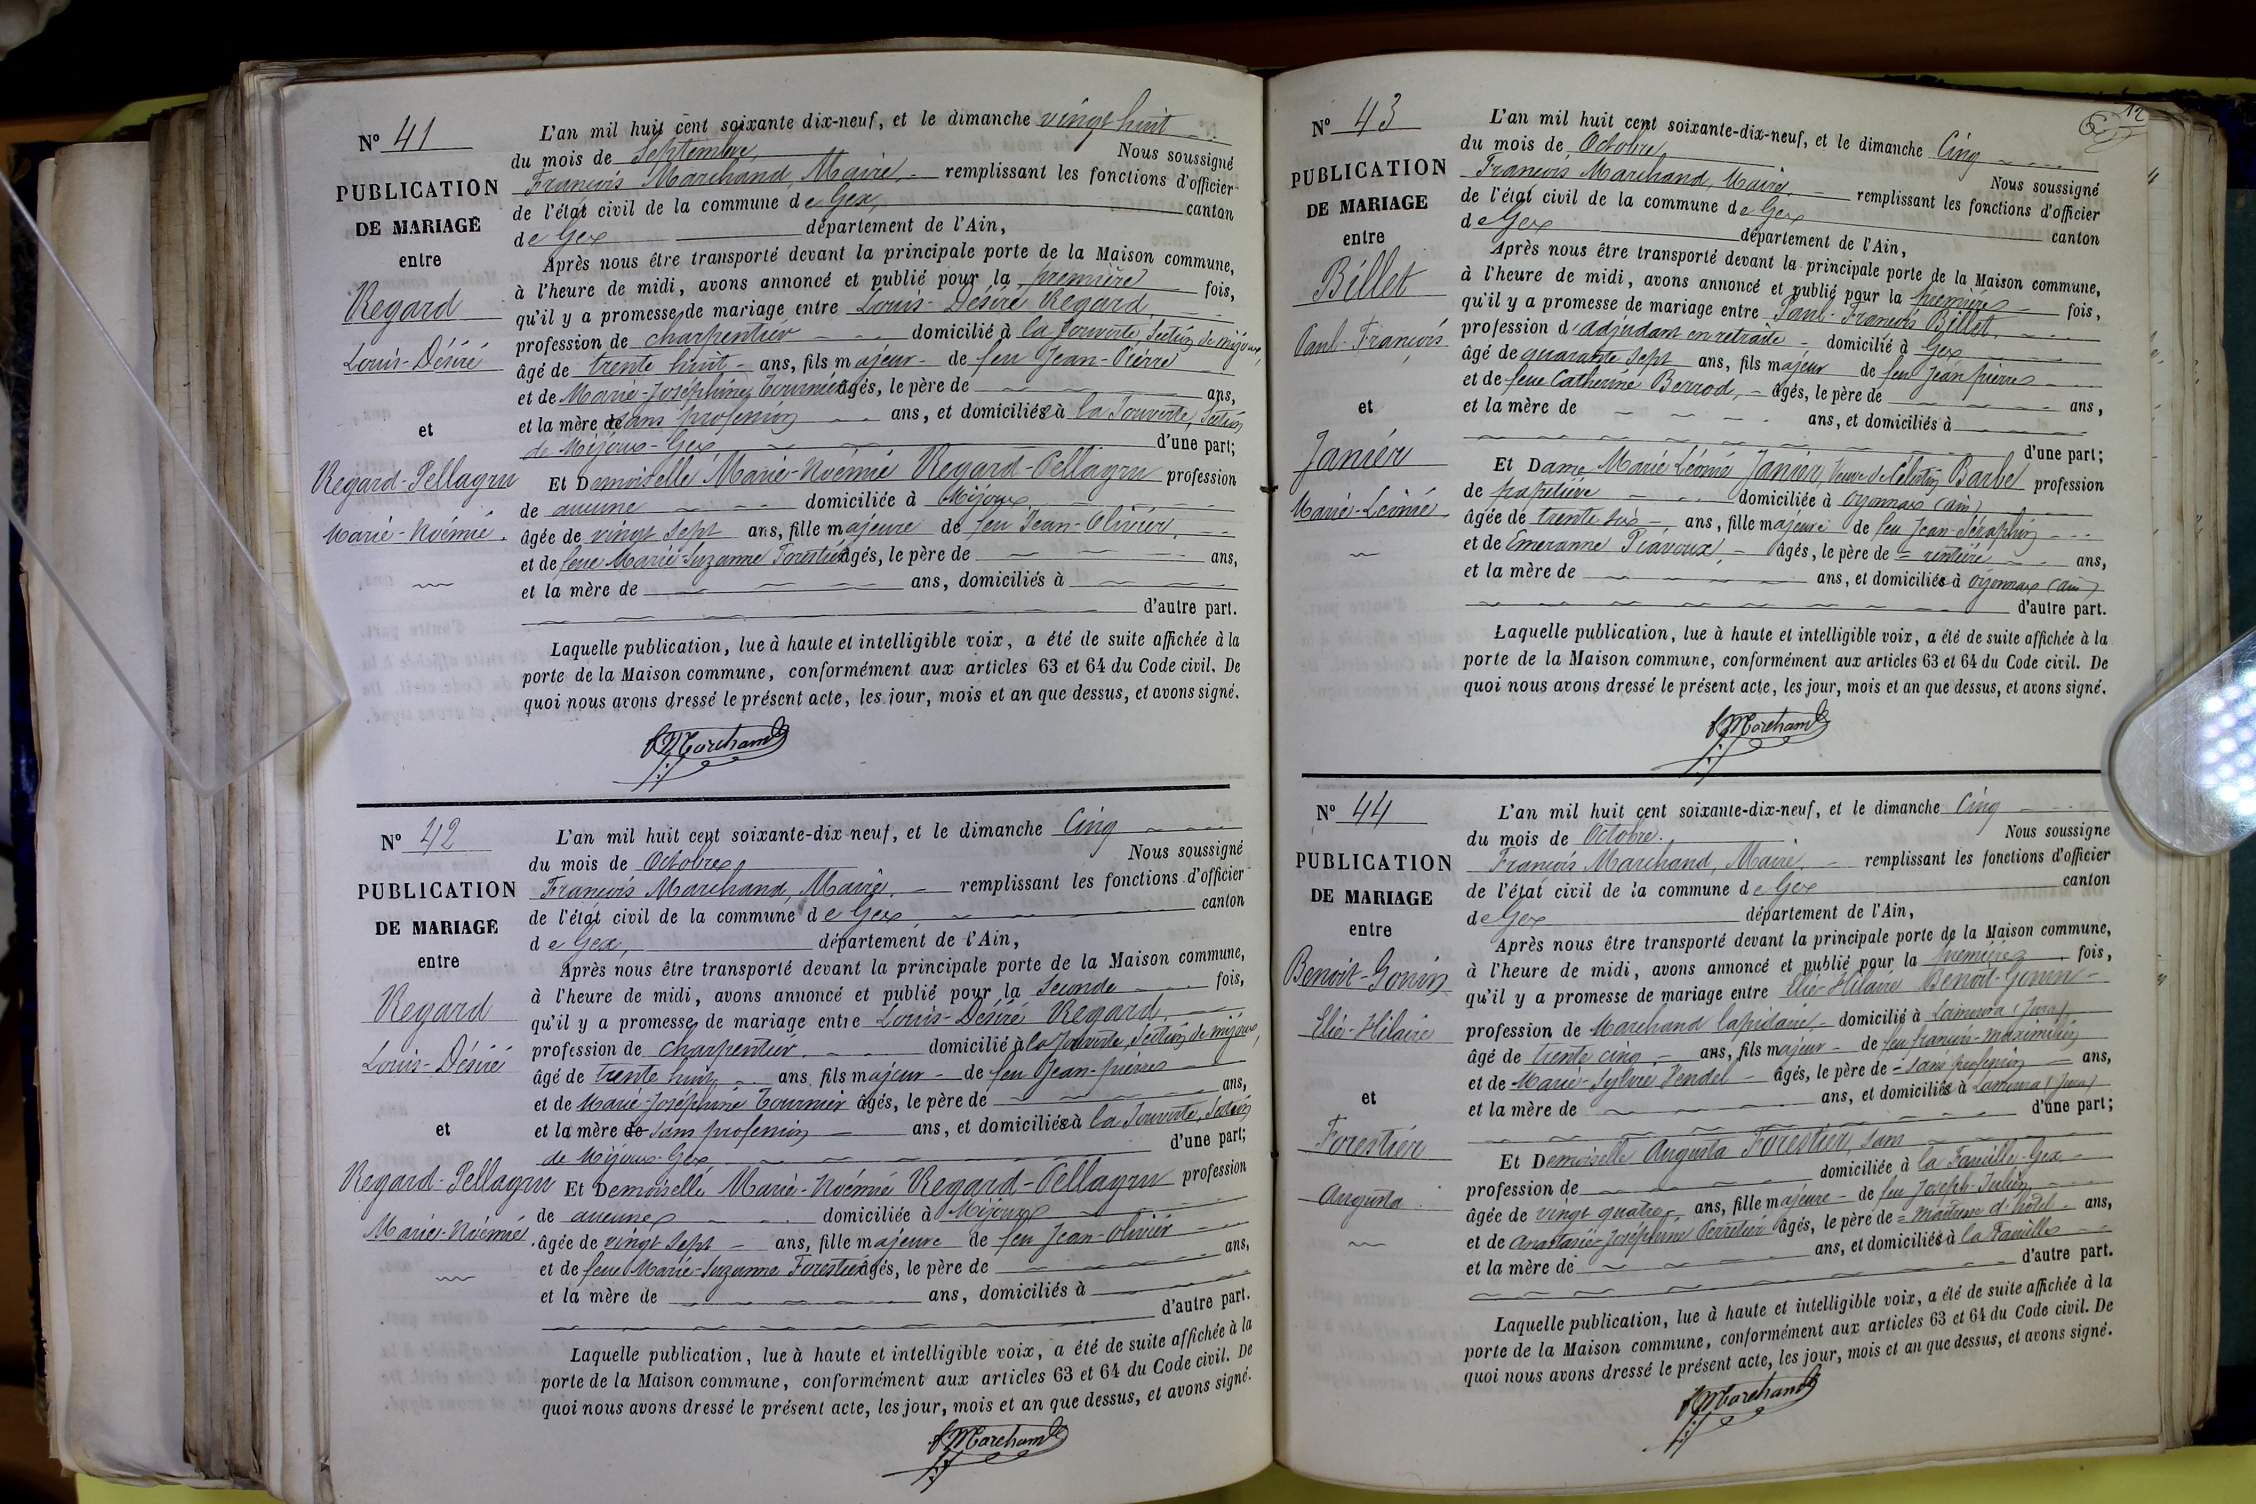 N° 41
PUBLICATION
DE MARIAGE
entre
Regard
Louis-Désiré
et
Regard-Pellagru
Marie-Noémie.
L'an mil huit cent soixante dix-neuf, et le dimanche vingt huit
du mois de Septembre, Nous soussigné
François Marchand, Maire, remplissant les fonctions d'officier
de l'état civil de la commune de Gex, canton
de Gex département de l'Ain,
Après nous être transporté devant la principale porte de la Maison commune,
à l'heure de midi, avons annoncé et publié pour la première fois,
qu'il y a promesse de mariage entre Louis-Désiré Regard
profession de charpentier domicilié à la Souverte, Section de mijoux,
âgé de trente huit ans, fils majeur de feu Jean-Pierre
et de Marie-Joséphine Tournier âgés, le père de ans,
et la mère de sans profession ans, et domiciliés à la Souverte, Section
de Mijoux-Gex d'une part;
Et Demoiselle Marie-Noémie Regard-Pellagru profession
de aucune domiciliée à Mijoux
âgée de vingt sept ans, fille majeure de feu Jean-Olivier,
et de feue Marie-Suzanne Forestier âgés, le père de ans,
et la mère de ans, domiciliés à
d'autre part.
Laquelle publication, lue à haute et intelligible voix, a été de suite affichée à la
porte de la Maison commune, conformément aux articles 63 et 64 du Code civil. De
quoi nous avons dressé le présent acte, les jour, mois et an que dessus, et avons signé.
f Marchand
N° 42
PUBLICATION
DE MARIAGE
entre
Regard
Louis-Désiré
et
Regard-Pellagru
Marie-Noémie.
L'an mil huit cent soixante-dix-neuf, et le dimanche Cinq
du mois de Octobre, Nous soussigné
François Marchand, Maire, remplissant les fonctions d'officier
de l'état civil de la commune de Gex canton
de Gex, département de l'Ain,
Après nous être transporté devant la principale porte de la Maison commune,
à l'heure de midi, avons annoncé et publié pour la Seconde fois,
qu'il y a promesse de mariage entre Louis-Désiré Regard,
profession de charpentier domicilié à la Souverte, Section de mijoux,
âgé de trente huit ans, fils majeur de feu Jean-pierre
et de Marie-Joséphine Tournier âgés, le père de ans,
et la mère de sans profession ans, et domiciliés à la Souverte, Section
de Mijoux-Gex d'une part;
Et Demoiselle Marie-Noémie Regard-Pellagru profession
de aucune domiciliée à Mijoux
âgée de vingt sept ans, fille majeure de feu Jean-Olivier
et de feue Marie-Suzanne Forestier âgés, le père de ans,
et la mère de ans, domiciliés à
d'autre part.
Laquelle publication, lue à haute et intelligible voix, a été de suite affichée à la
porte de la Maison commune, conformément aux articles 63 et 64 du Code civil. De
quoi nous avons dressé le présent acte, les jour, mois et an que dessus, et avons signé.
f Marchand
12
N° 43
PUBLICATION
DE MARIAGE
entre
Billet
Paul-François
et
Janier
Marie-Léonie.
L'an mil huit cent soixante-dix-neuf, et le dimanche Cinq
du mois de Octobre, Nous soussigné
François Marchand, Maire, remplissant les fonctions d'officier
de l'état civil de la commune de Gex canton
de Gex département de l'Ain,
Après nous être transporté devant la principale porte de la Maison commune,
à l'heure de midi, avons annoncé et publié pour la première fois,
qu'il y a promesse de mariage entre Paul-François Billet,
profession d'adjudant en retraite domicilié à Gex
âgé de quarante sept ans, fils majeur de feu Jean pierre
et de feue Catherine Berrod, âgés, le père de ans,
et la mère de ans, et domiciliés à
d'une part;
Et Dame Marie Léonie Janier, Veuve de Célestin Barbe profession
de papetière domiciliée à Oyonnax (ain)
âgée de trente six ans, fille majeure de feu Jean-Séraphin
et de Emeranne Piavoux, âgés, le père de = rentière ans,
et la mère de ans, et domiciliés à Oyonnax (ain)
d'autre part.
Laquelle publication, lue à haute et intelligible voix, a été de suite affichée à la
porte de la Maison commune, conformément aux articles 63 et 64 du Code civil. De
quoi nous avons dressé le présent acte, les jour, mois et an que dessus, et avons signé.
f Marchand
N° 44
PUBLICATION
DE MARIAGE
entre
Benoit-Gonin
Elie-Hilaire
et
Forestier
Augusta
L'an mil huit cent soixante-dix-neuf, et le dimanche Cinq
du mois de Octobre. Nous soussigné
François Marchand, Maire, remplissant les fonctions d'officier
de l'état civil de la commune de Gex canton
de Gex département de l'Ain,
Après nous être transporté devant la principale porte de la Maison commune,
à l'heure de midi, avons annoncé et publié pour la première fois,
qu'il y a promesse de mariage entre Elie Hilaire Benoit-Gonin
profession de Marchand lapidaire domicilié à Lamoura (Jura)
âgé de trente cinq ans, fils majeur de feu françois-maximilien
et de Marie-Sylvie Vendel âgés, le père de = sans profession ans,
et la mère de ans, et domiciliés à Lamoura (Jura)
d'une part;
Et Demoiselle Augusta Forestier, sans
profession de domiciliée à la Faucille-Gex
âgée de vingt quatre ans, fille majeure de feu Joseph-Julien
et de Anastasie-Joséphine Perretier âgés, le père de = maîtresse d'hôtel ans,
et la mère de ans, et domiciliés à la Faucille
d'autre part.
Laquelle publication, lue à haute et intelligible voix, a été de suite affichée à la
porte de la Maison commune, conformément aux articles 63 et 64 du Code civil. De
quoi nous avons dressé le présent acte, les jour, mois et an que dessus, et avons signé.
f Marchand